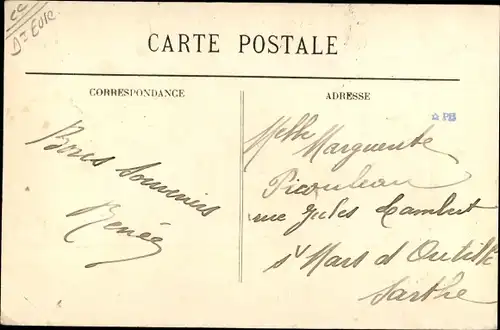 CC
Dt EURE
CARTE POSTALE
CORRESPONDANCE
ADRESSE
PB
Bons Souvenirs
Renée
Melle Marguerite
rue Jules Lambert
St Mars d'Outillé
Sarthe